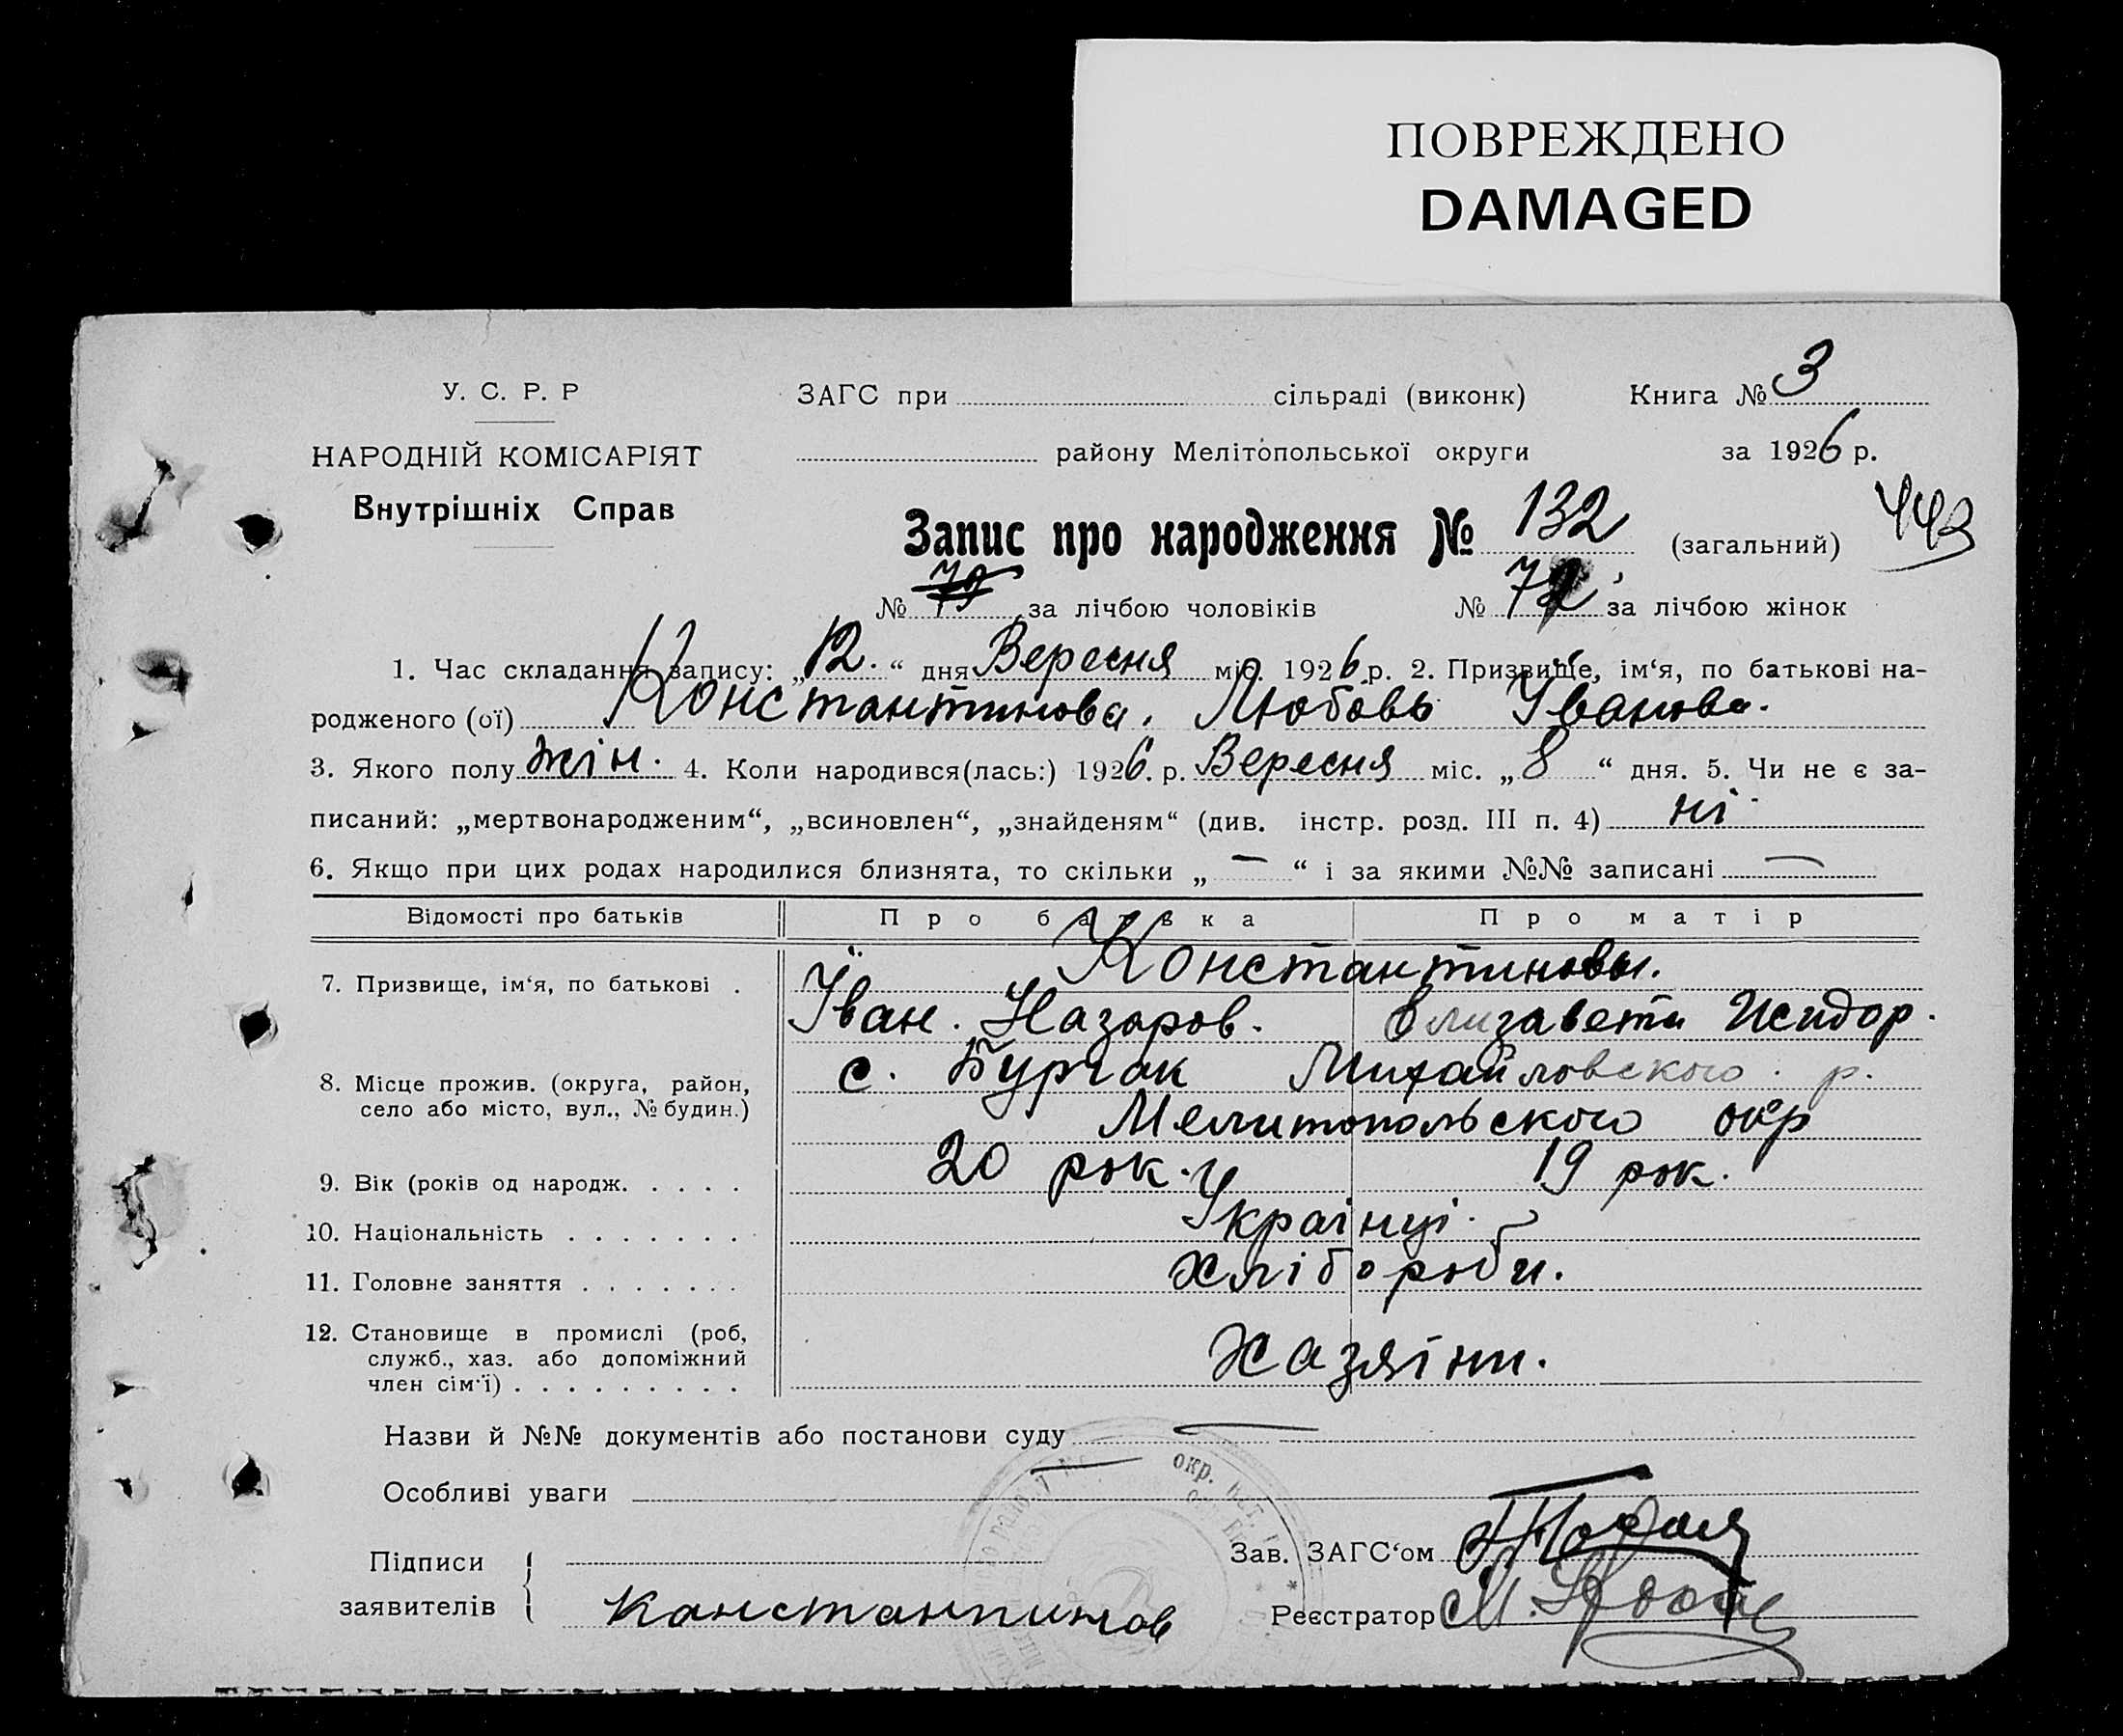 ПОВРЕЖДЕНО
DAMAGED
У. С. Р. Р
НАРОДНІЙ КОМІСАРІЯТ
Внутрішніх Справ
ЗАГС при сільраді (виконк) Книга № 3
району Мелітопольської округи за 1926 р.
Запис про народження № 132 (загальний) 443
№ 79 за лічбою чоловіків № за лічбою жінок
1. Час складання запису: „12.“ дня Вересня міс. 1926 р. 2. Призвище, ім‘я, по батькові на-
родженого (ої) Константинова. Любовь Іванова.
3. Якого полу жін. 4. Коли народився(лась:) 1926. р. Вересня міс. „8“ дня. 5. Чи не є за-
писаний: „мертвонародженим“, „всиновлен“, „знайденям“ (див. інстр. розд. III п. 4) ні
6. Якщо при цих родах народилися близнята, то скільки „—“ і за якими №№ записані —
Відомості про батьків Про батька Про матір
Константиновы.
7. Призвище, ім‘я, по батькові .
Іван. Назаров. Елизавета Исидор.
8. Місце прожив. (округа, район,
село або місто, вул., № будин.)
с. Бурчак Михайловского р.
Мелитопольского окр
9. Вік (років од народж. . . . . 20 рок. 19 рок.
10. Національність . . . . . . . Українці.
11. Головне заняття . . . . . . . Хлібороби.
12. Становище в промислі (роб,
служб., хаз. або допоміжний
член сім‘ї) . . . . . . . . . Хазяїни.
Назви й №№ документів або постанови суду —
Особливі уваги —
окр.
Підписи
заявителів
Константинов
Зав. ЗАГС‘ом
Реєстратор М.